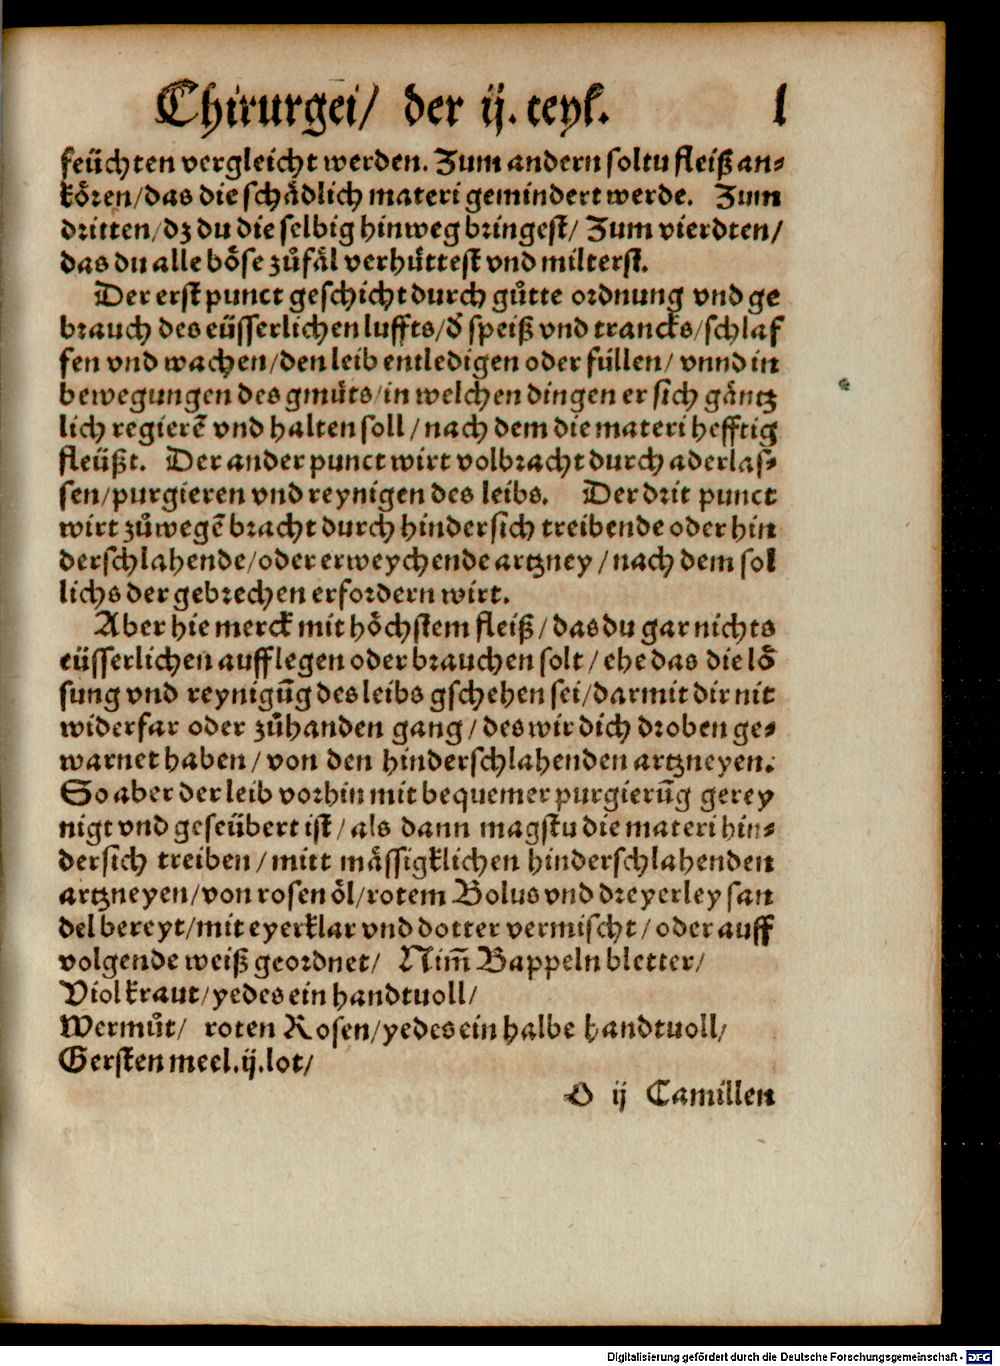 Chirurgei/ der ij. teyl. l
feüchten vergleicht werden. Zum andern soltu fleiß an-
kören/das die schädlich materi gemindert werde. Zum
dritten/dz du die selbig hinweg bringest/ Zum vierdten/
das du alle böse zůfäl verhüttest vnd milterst.
Der erst punct geschicht durch gůtte ordnung vnd ge
brauch des eüsserlichen luffts/d̕ speiß vnd trancks/schlaf
fen vnd wachen/den leib entledigen oder füllen/ vnnd in
bewegungen des gmůts/in welchen dingen er sich gäntz
lich regierẽ vnd halten soll/nach dem die materi hefftig
fleüßt. Der ander punct wirt volbracht durch aderlas-
sen/purgieren vnd reynigen des leibs. Der drit punct
wirt zůwegẽ bracht durch hindersich treibende oder hin
derschlahende/oder erweychende artzney/nach dem sol
lichs der gebrechen erfordern wirt.
Aber hie merck mit höchstem fleiß/das du gar nichts
eüsserlichen aufflegen oder brauchen solt/ehe das die lö
sung vnd reynigũg des leibs gschehen sei/darmit dir nit
widerfar oder zůhanden gang/des wir dich droben ge-
warnet haben/von den hinderschlahenden artzneyen.
So aber der leib vorhin mit bequemer purgierũg gerey
nigt vnd geseübert ist/als dann magstu die materi hin-
dersich treiben/mitt mässigklichen hinderschlahenden
artzneyen/von rosen öl/rotem Bolus vnd dreyerley san
del bereyt/mit eyerklar vnd dotter vermischt/oder auff
volgende weiß geordnet/ Nim̃ Bappeln bletter/
Violkraut/yedes ein handtuoll/
Wermůt/ roten Rosen/yedes ein halbe handtuoll/
Gersten meel.ij.lot/
O ij Camillen
Digitalisierung gefördert durch die Deutsche Forschungsgemeinschaft - DFG